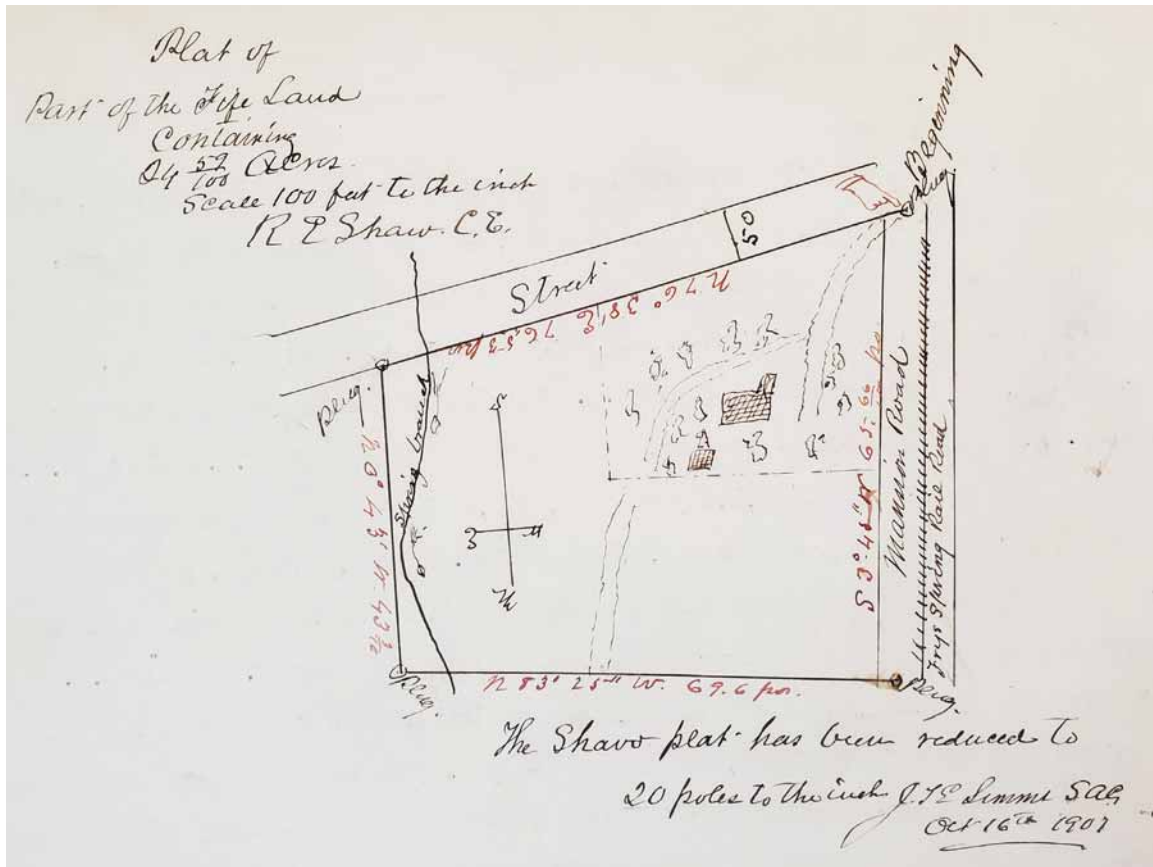 Plat of
Part of the Fife Land
Containing
24 52/100 Acres.
Scale 100 feet to the inch
R E Shaw. C.E.
Beginning
Plug
Street
50
N 76° 38' E 76.53 po.
Plug.
N 0° 43' W 43
Spring branch
S 3° 45" W 65.60 po.
Mannion Road
Frys Spring Rail Road
Plug.
N 83° 25" W. 69.6 po.
Plug.
The Shaw plat has been reduced to
20 poles to the inch J.T.E Simms SAC
Oct 16th 1907